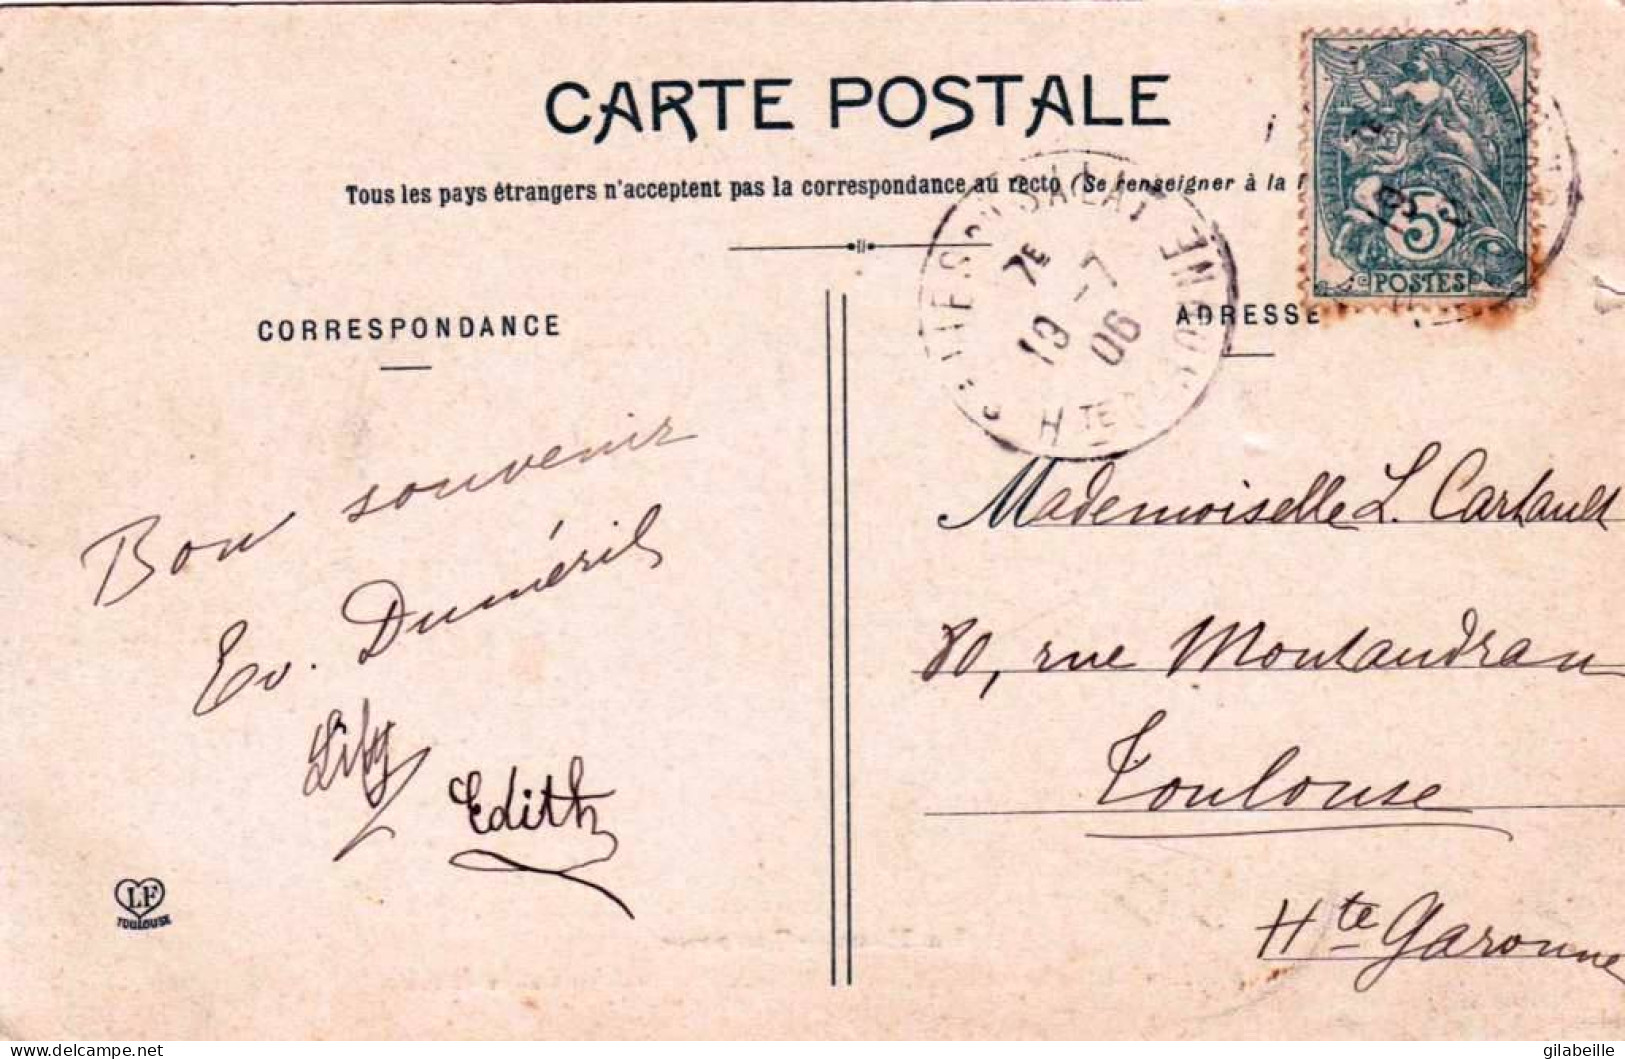 CARTE POSTALE
Tous les pays étrangers n'acceptent pas la correspondance au recto (Se renseigner à la
5c
POSTES
SALAT
7E
19 -7
06
Hte GARONNE
CORRESPONDANCE
ADRESSE
Bon souvenir
Ev. Duméril
Lily
Edith
LF
TOULOUSE
Mademoiselle L. Cartault
80, rue Montaudran
Toulouse
Hte Garonne
© delcampe.net
gilabeille